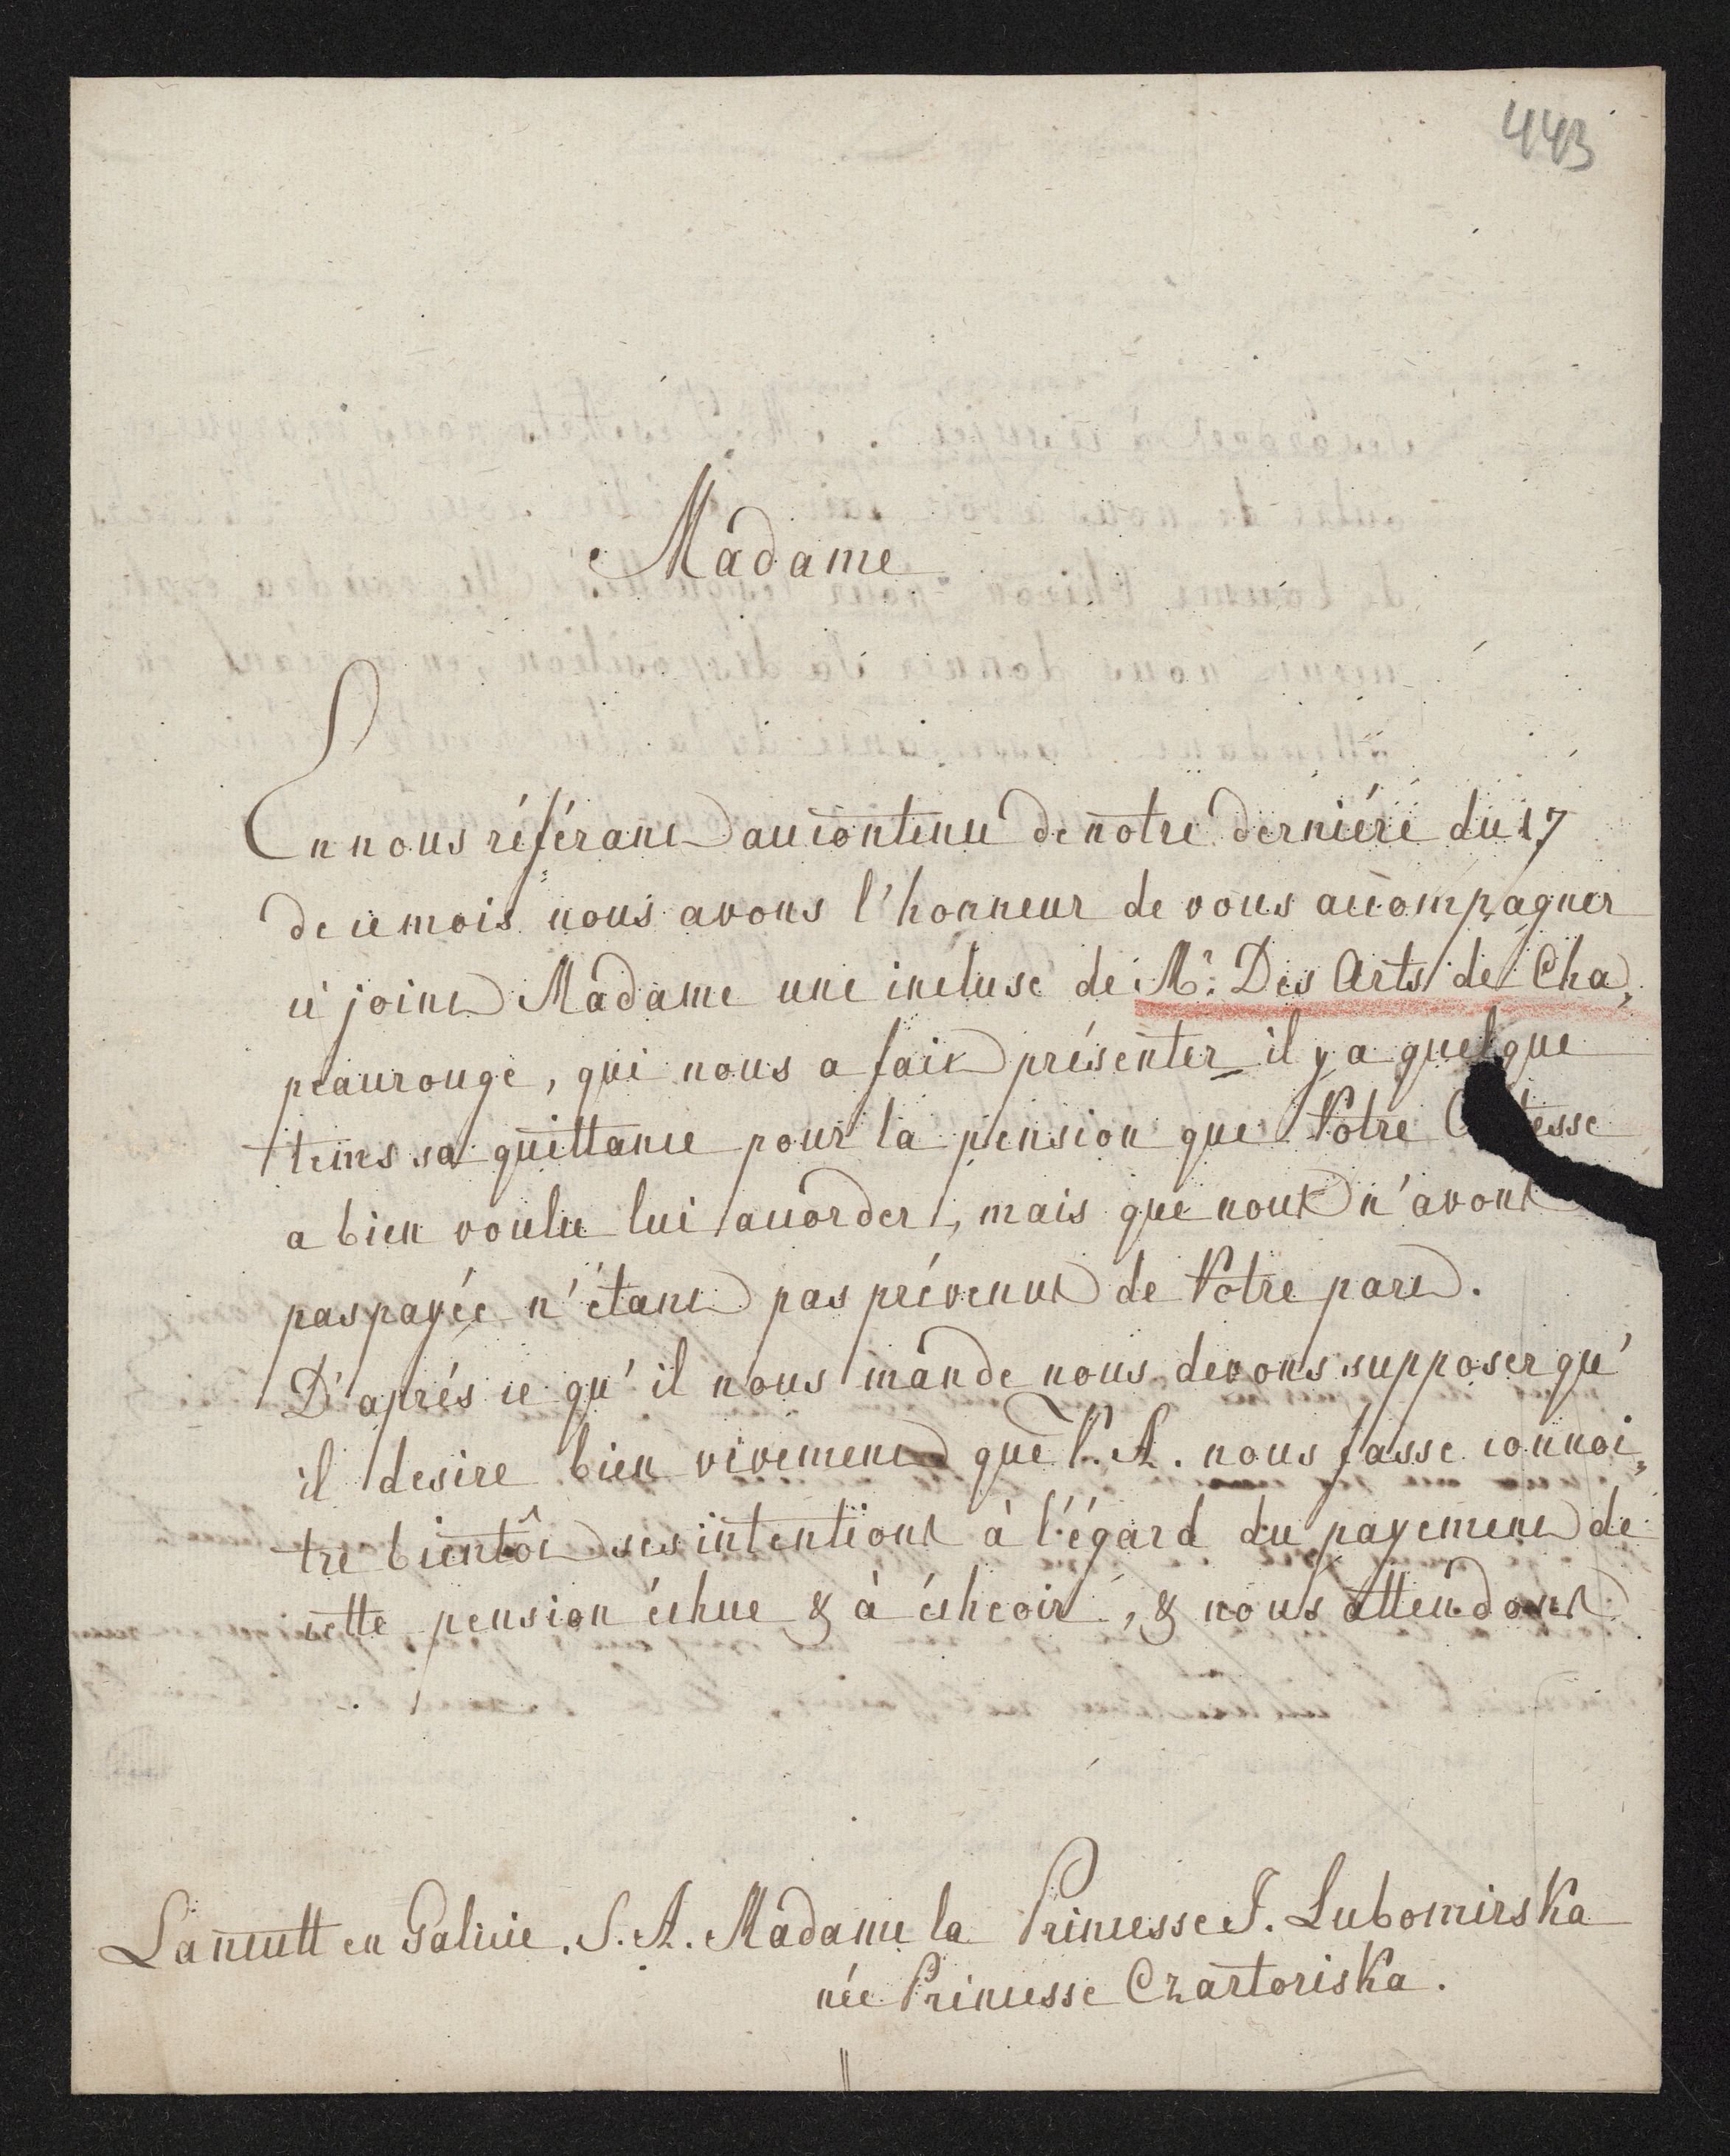 443
Madame
En nous référant au contenu de notre derniére du 17
de ce mois nous avons l'honneur de vous accompagner
ci joint Madame une incluse de Mr. Des Arts de Cha,
peaurouge, qui nous a fait présenter il y a quelque
tems sa quittance pour la pension que Votre
a bien voulu lui accorder, mais que nous n'avons
pas payée n'étant pas prévenus de Votre part.
D'aprés ce qu'il nous mande nous devons supposer qu'
il desire bien vivement que V. A. nous fasse connoi,
tre bientôt ses intentions à l'égard du payement de
cette pension échue & à écheoir, & nous attendons
Lancutt en Galicie. S. A. Madame la Princesse J. Lubomirska
née Princesse Czartoriska.